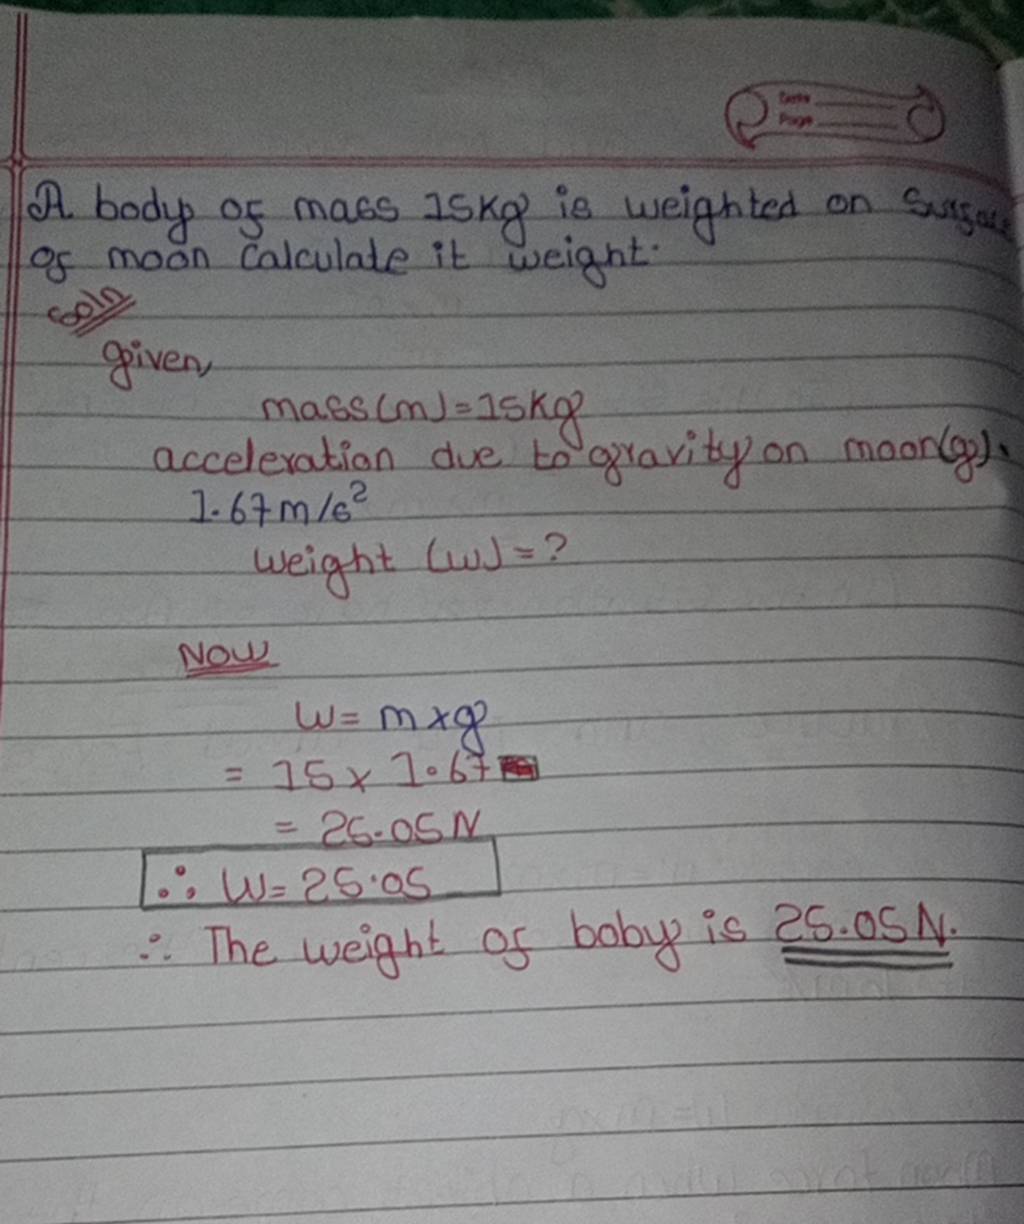 Date
Page
A body of mass 15Kg is weighted on Surface
of moon Calculate it weight.
Soln
given,
mass(m)=15Kg
acceleration due to gravity on moon(g).
1.67m/s²
weight (w)=?
Now
W= m×g
= 15× 1.67
= 25.05N
∴ W= 25.05
∴ The weight of boby is 25.05N.